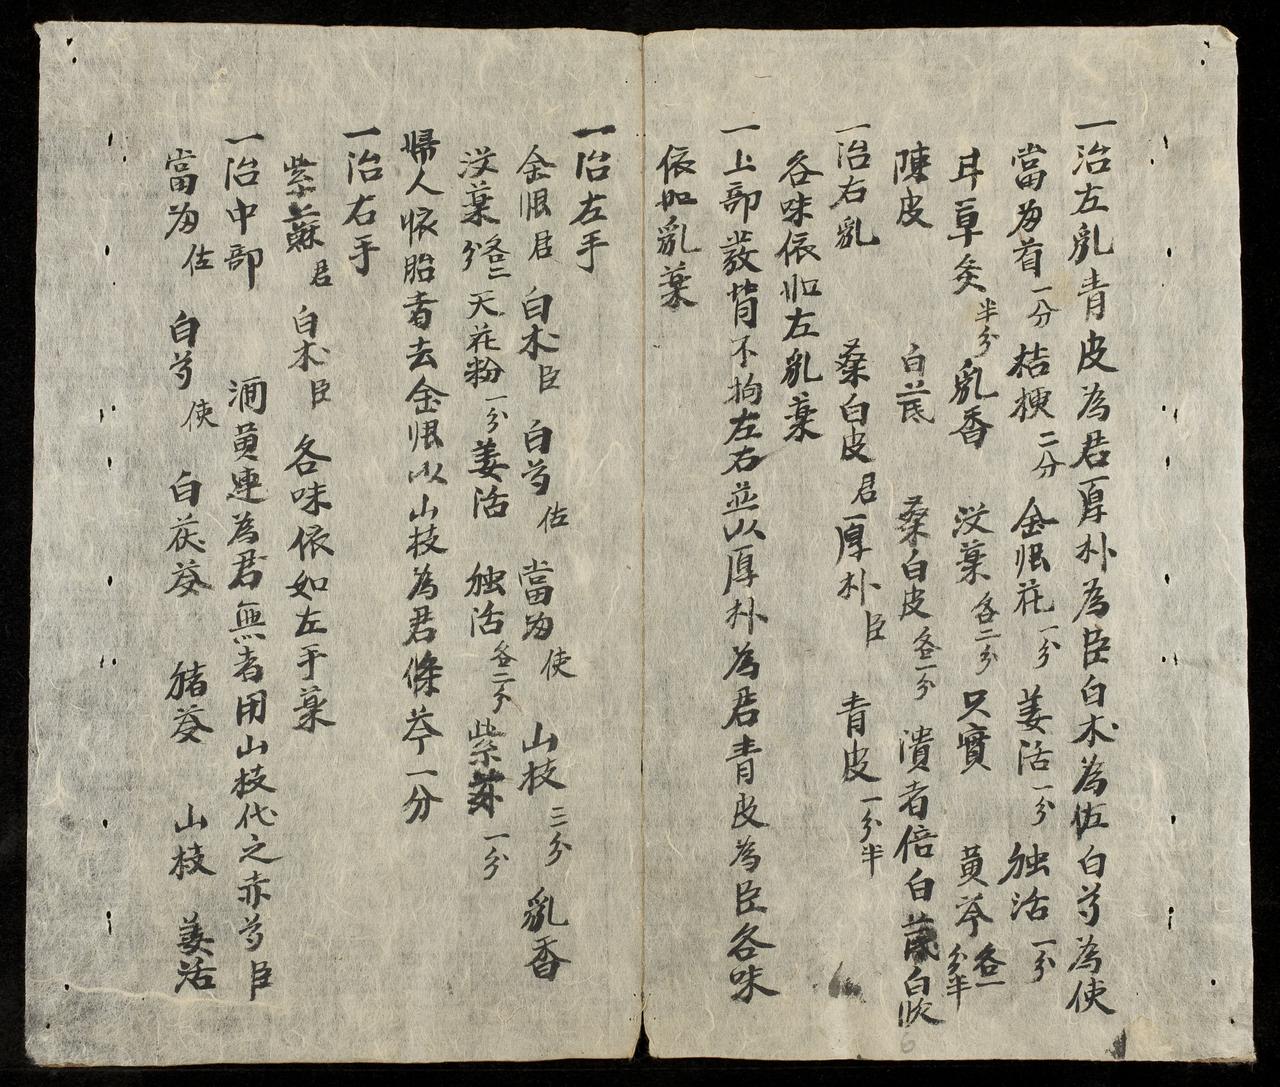 一治左乳青皮為君厚朴為臣白朮為佐白芍為使
當為首一分桔梗二分金恨花一分姜活一分独活一分
甘草灸半分乳香 没葉各二分只實 黄芩各一分半
陳皮 白芷 桑白皮各一分 潰者倍白 白歛
一治右乳 桑白皮君厚朴臣 青皮一分半
各味依如左乳葉
一上部發背不拘左右並以厚朴為君青皮為臣各味
依如乳葉
一治左手
金恨君 白朮臣 白芍佐 當為使 山枝三分 乳香
没葉各二分天花粉一分姜活 独活各二分紫 一分
婦人懐胎者去金恨以山枝為君條芩一分
一治右手
紫蘇君 白朮臣 各味依如左手葉
一治中部 酒黄連為君無者用山枝代之赤芍臣
當為佐 白芍使 白茯苓 猪苓 山枝 姜活